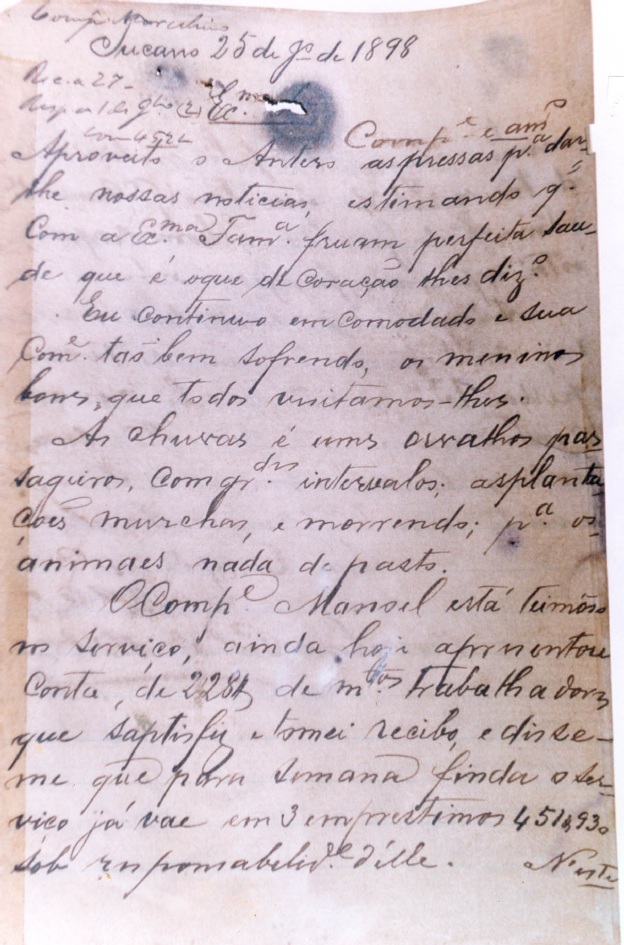 Comp.e Marcelino
Tucano 25 de Jo de 1898
Rec. a 27 -
Resp. a 1 de
Ex.mo
Comp.e e am.o
Aproveito o Antero aspressas p.a dar-
lhe nossas noticias, estimando q.e
Com a Ex.ma Fam.a fruam perfeita sau-
de que é oque de coração lhes diz.o
Eu continuo emcomodado e sua
Com.e tãobem sofrendo, os meninos
bons, que todos visitamos-lhes.
As chuvas é uns orvalhos pas
sageiros, com gr.des intervalos; asplanta
ções murchas, e morrendo; p.a os
animaes nada de pasto.
O Comp.e Manoel está teimoso
no serviço, ainda hoje apresentou
Conta, de 228$ de m.tos trabalhadores
que saptisfiz e tomei recibo, e disse-
me que para semana finda o ser-
viço já vae em 3 emprestimos 451$930
sob responsabelid.e d'elle. N'este